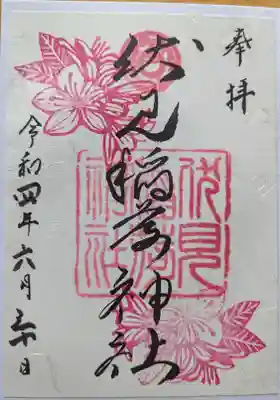 奉拝
伏見稲荷神社
令和四年六月三十日
伏見
稲荷
神社